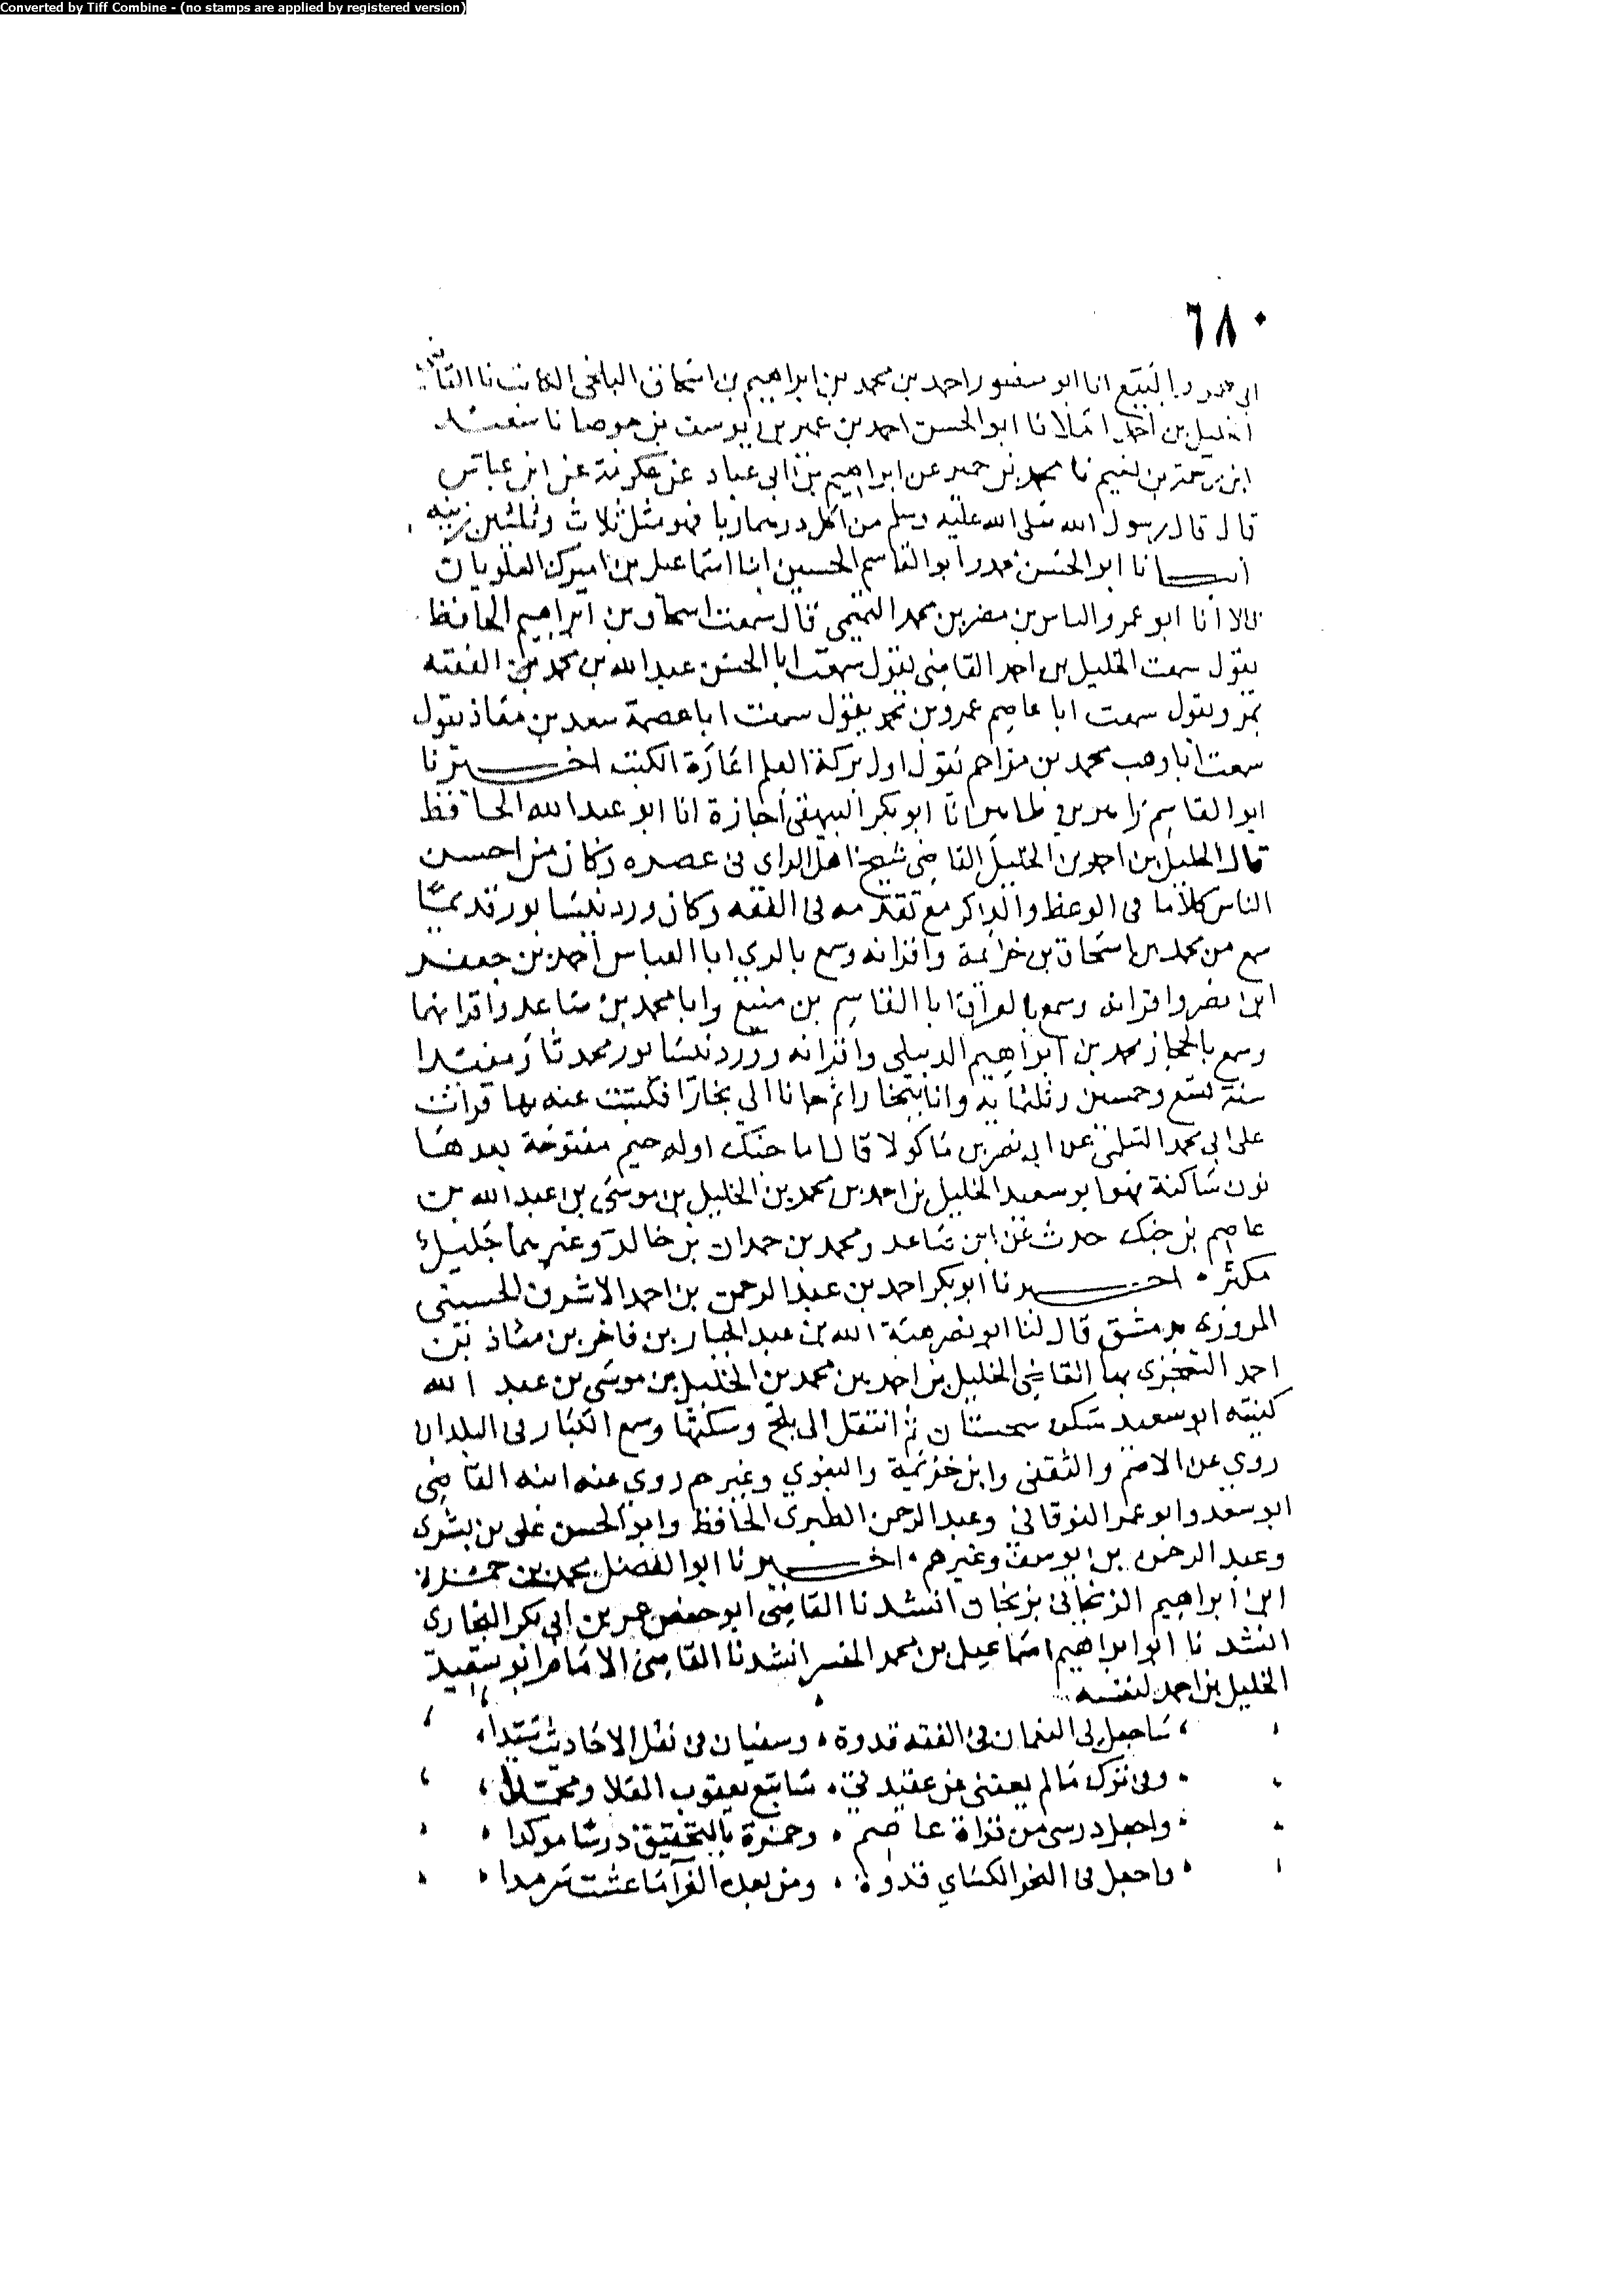 Converted by Tiff Combine - (no stamps are applied by registered version)
٦٨٠
البيع انا ابو منصور احمد بن محمد بن ابراهيم بن اسحاق البلخي نا القاضي
الخليل بن احمد املانا ابو الحسن احمد بن عمير بن يوسف بن جوصا نا سعيد
ابن رحمة بن نعيم نا محمد بن حمير عن ابراهيم بن ابي عباد عن عكرمة عن ابن عباس
قال قال رسول الله صلى الله عليه وسلم من اكل درهما ربا فهو مثل ثلاث وثلثين زنية
انبانا ابو الحسن وابو القاسم الحسين ابنا اسماعيل بن اميرك العلويان
قالا انا ابو عمرو الياس بن مضر بن محمد التميمي قال سمعت اسحاق بن ابراهيم الحافظ
يقول سمعت الخليل بن احمد القاضي يقول سمعت ابا الحسن عبد الله بن محمد الفقيه
بمرو يقول سمعت ابا عاصم عمرو بن محمد يقول سمعت ابا عصمة سعد بن معاذ يقول
سمعت ابا وهب محمد بن مزاحم يقول اول بركة العلم اعارة الكتب اخبرنا
ابو القاسم زاهر بن طاهر انا ابو بكر البيهقي اجازة انا ابو عبد الله الحافظ
قال الخليل بن احمد بن الخليل القاضي شيخ اهل الراي في عصره وكان من احسن
الناس كلاما في الوعظ والذاكر مع تقدمه في الفقه وكان ورد نيسابور قديما
سمع من محمد بن اسحاق بن خزيمة واقرانه وسمع بالري ابا العباس احمد بن جعفر
ابن نصر واقرانه وسمع بالعراق ابا القاسم بن منيع وابا محمد بن صاعد واقرانهما
وسمع بالحجاز محمد بن ابراهيم الديبلي واقرانه وورد نيسابور محدثا ومفيدا
سنة تسع وخمسين وثلثماية وانا ببخارا ثم جانا الى بخارا فكتبت عنه بها قرات
على ابي محمد السلمي عن ابي نصر بن ماكولا قال اما جنك اوله جيم مفتوحة بعدها
نون ساكنة فهو ابو سعيد الخليل بن احمد بن محمد بن الخليل بن موسى بن عبد الله بن
عاصم بن جنك حدث عن ابن صاعد ومحمد بن حمدان بن خالد وغيرهما جليل
مكثر ٠ اخبرنا ابو بكر احمد بن عبد الرحمن بن احمد الاشرف الحسيني
المروزي بدمشق قال لنا ابو نصر هبة الله بن عبد الجبار بن فاخر بن معاذ بن
احمد السجزي بها القاضي الخليل بن احمد بن محمد بن الخليل بن موسى بن عبد الله
كنيته ابو سعيد سكن سجستان ثم انتقل الى بلخ وسكنها وسمع الكبار في البلدان
روى عن الاصم والثقفي وابن خزيمة والبغوي وغيرهم روى عنه ابنه القاضي
ابو سعد وابو عمر النوقاني وعبد الرحمن الطبري الحافظ وابو الحسن علي بن بشرى
وعبد الرحمن بن يوسف وغيرهم ٠ اخبرنا ابو الفضل محمد بن حمزة
ابن ابراهيم الزنجاني بزنجان انشدنا القاضي ابو حفص عمر بن ابي بكر البخاري
انشدنا ابو ابراهيم اسماعيل بن محمد المفسر انشدنا القاضي الامام ابو سعيد
الخليل بن احمد لنفسه
ساجعل لي النعمان في الفقه قدوة ٠ وسفيان في نقل الاحاديث سيدا
وفي ترك ما لم يعنني من عقيدتي ٠ ساتبع يعقوب العلا ومحمدا
واجعل درسي من قراة عاصم ٠ وحمزة بالتحقيق درسا موكدا
واجعل في النحو الكساي قدوة ٠ ومن بعده الفرا ما عشت سرمدا